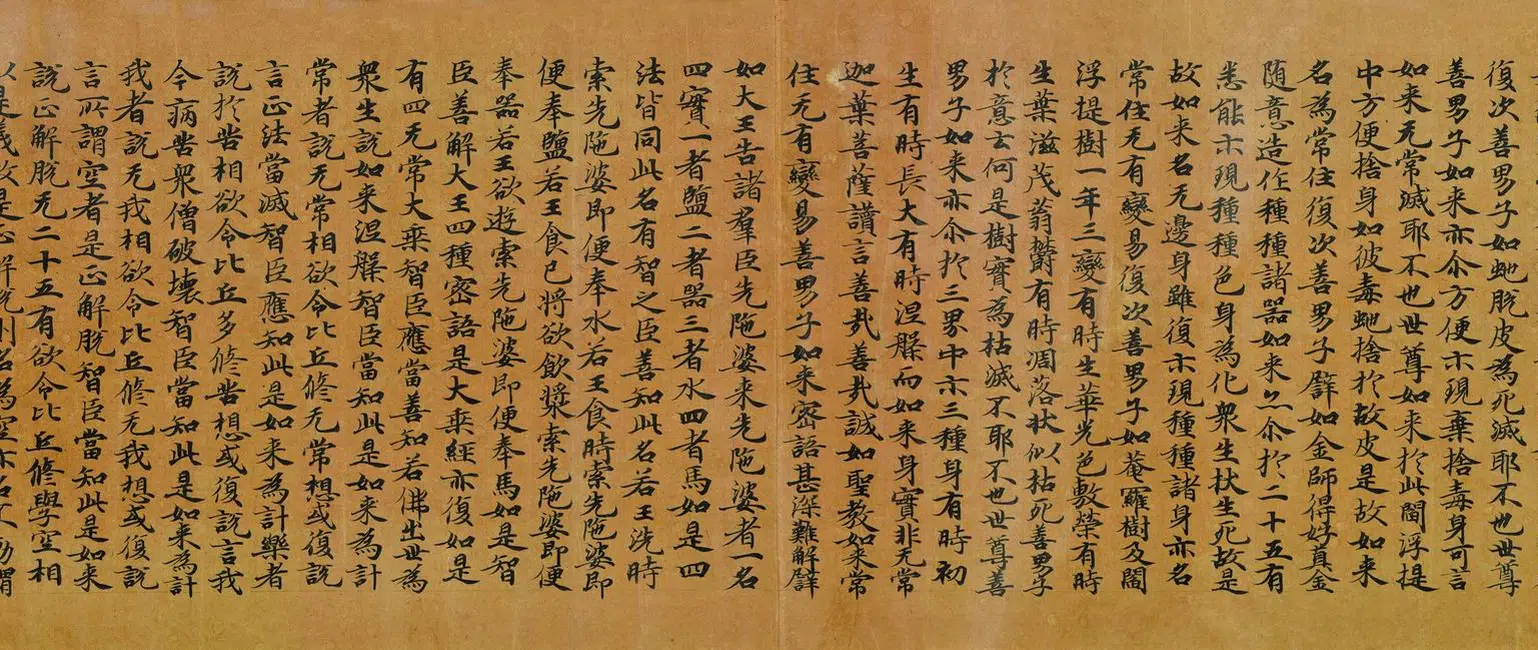 復次善男子如虵脱皮為死滅耶不也世尊
善男子如来亦尒方便示現棄捨毒身可言
如来无常滅耶不也世尊如来於此閻浮提
中方便捨身如彼毒虵捨於故皮是故如来
名為常住復次善男子譬如金師得好真金
随意造作種種諸器如来亦尒於二十五有
悉能示現種種色身為化衆生扙生死故是
故如来名无邊身雖復示現種種諸身亦名
常住无有變易復次善男子如菴羅樹及閻
浮提樹一年三變有時生華光色敷榮有時
生葉滋茂蓊欝有時凋落状似枯死善男子
於意云何是樹實為枯滅不耶不也世尊善
男子如来亦尒於三界中示三種身有時初
生有時長大有時涅槃而如来身實非无常
迦葉菩薩讚言善㢤善㢤誠如聖教如来常
住无有變易善男子如来密語甚深難解譬
如大王告諸羣臣先陁婆来先陁婆者一名
四實一者鹽二者器三者水四者馬如是四
法皆同此名有智之臣善知此名若王洗時
索先陁婆即便奉水若王食時索先陁婆即
便奉鹽若王食已將欲飲漿索先陁婆即便
奉器若王欲遊索先陁婆即便奉馬如是智
臣善解大王四種密語是大乗經亦復如是
有四无常大乗智臣應當善知若佛出世為
衆生説如来涅槃智臣當知此是如来為計
常者説无常相欲令比丘修无常想或復説
言正法當滅智臣應知此是如来為計樂者
説於苦相欲令比丘多修苦想或復説言我
今病苦衆僧破壊智臣當知此是如来為計
我者説无我相欲令比丘修无我想或復説
言所謂空者是正解脱智臣當知此是如来
説正解脱无二十五有欲令比丘修學空相
以是義故是正解脱則名為空亦名不動謂